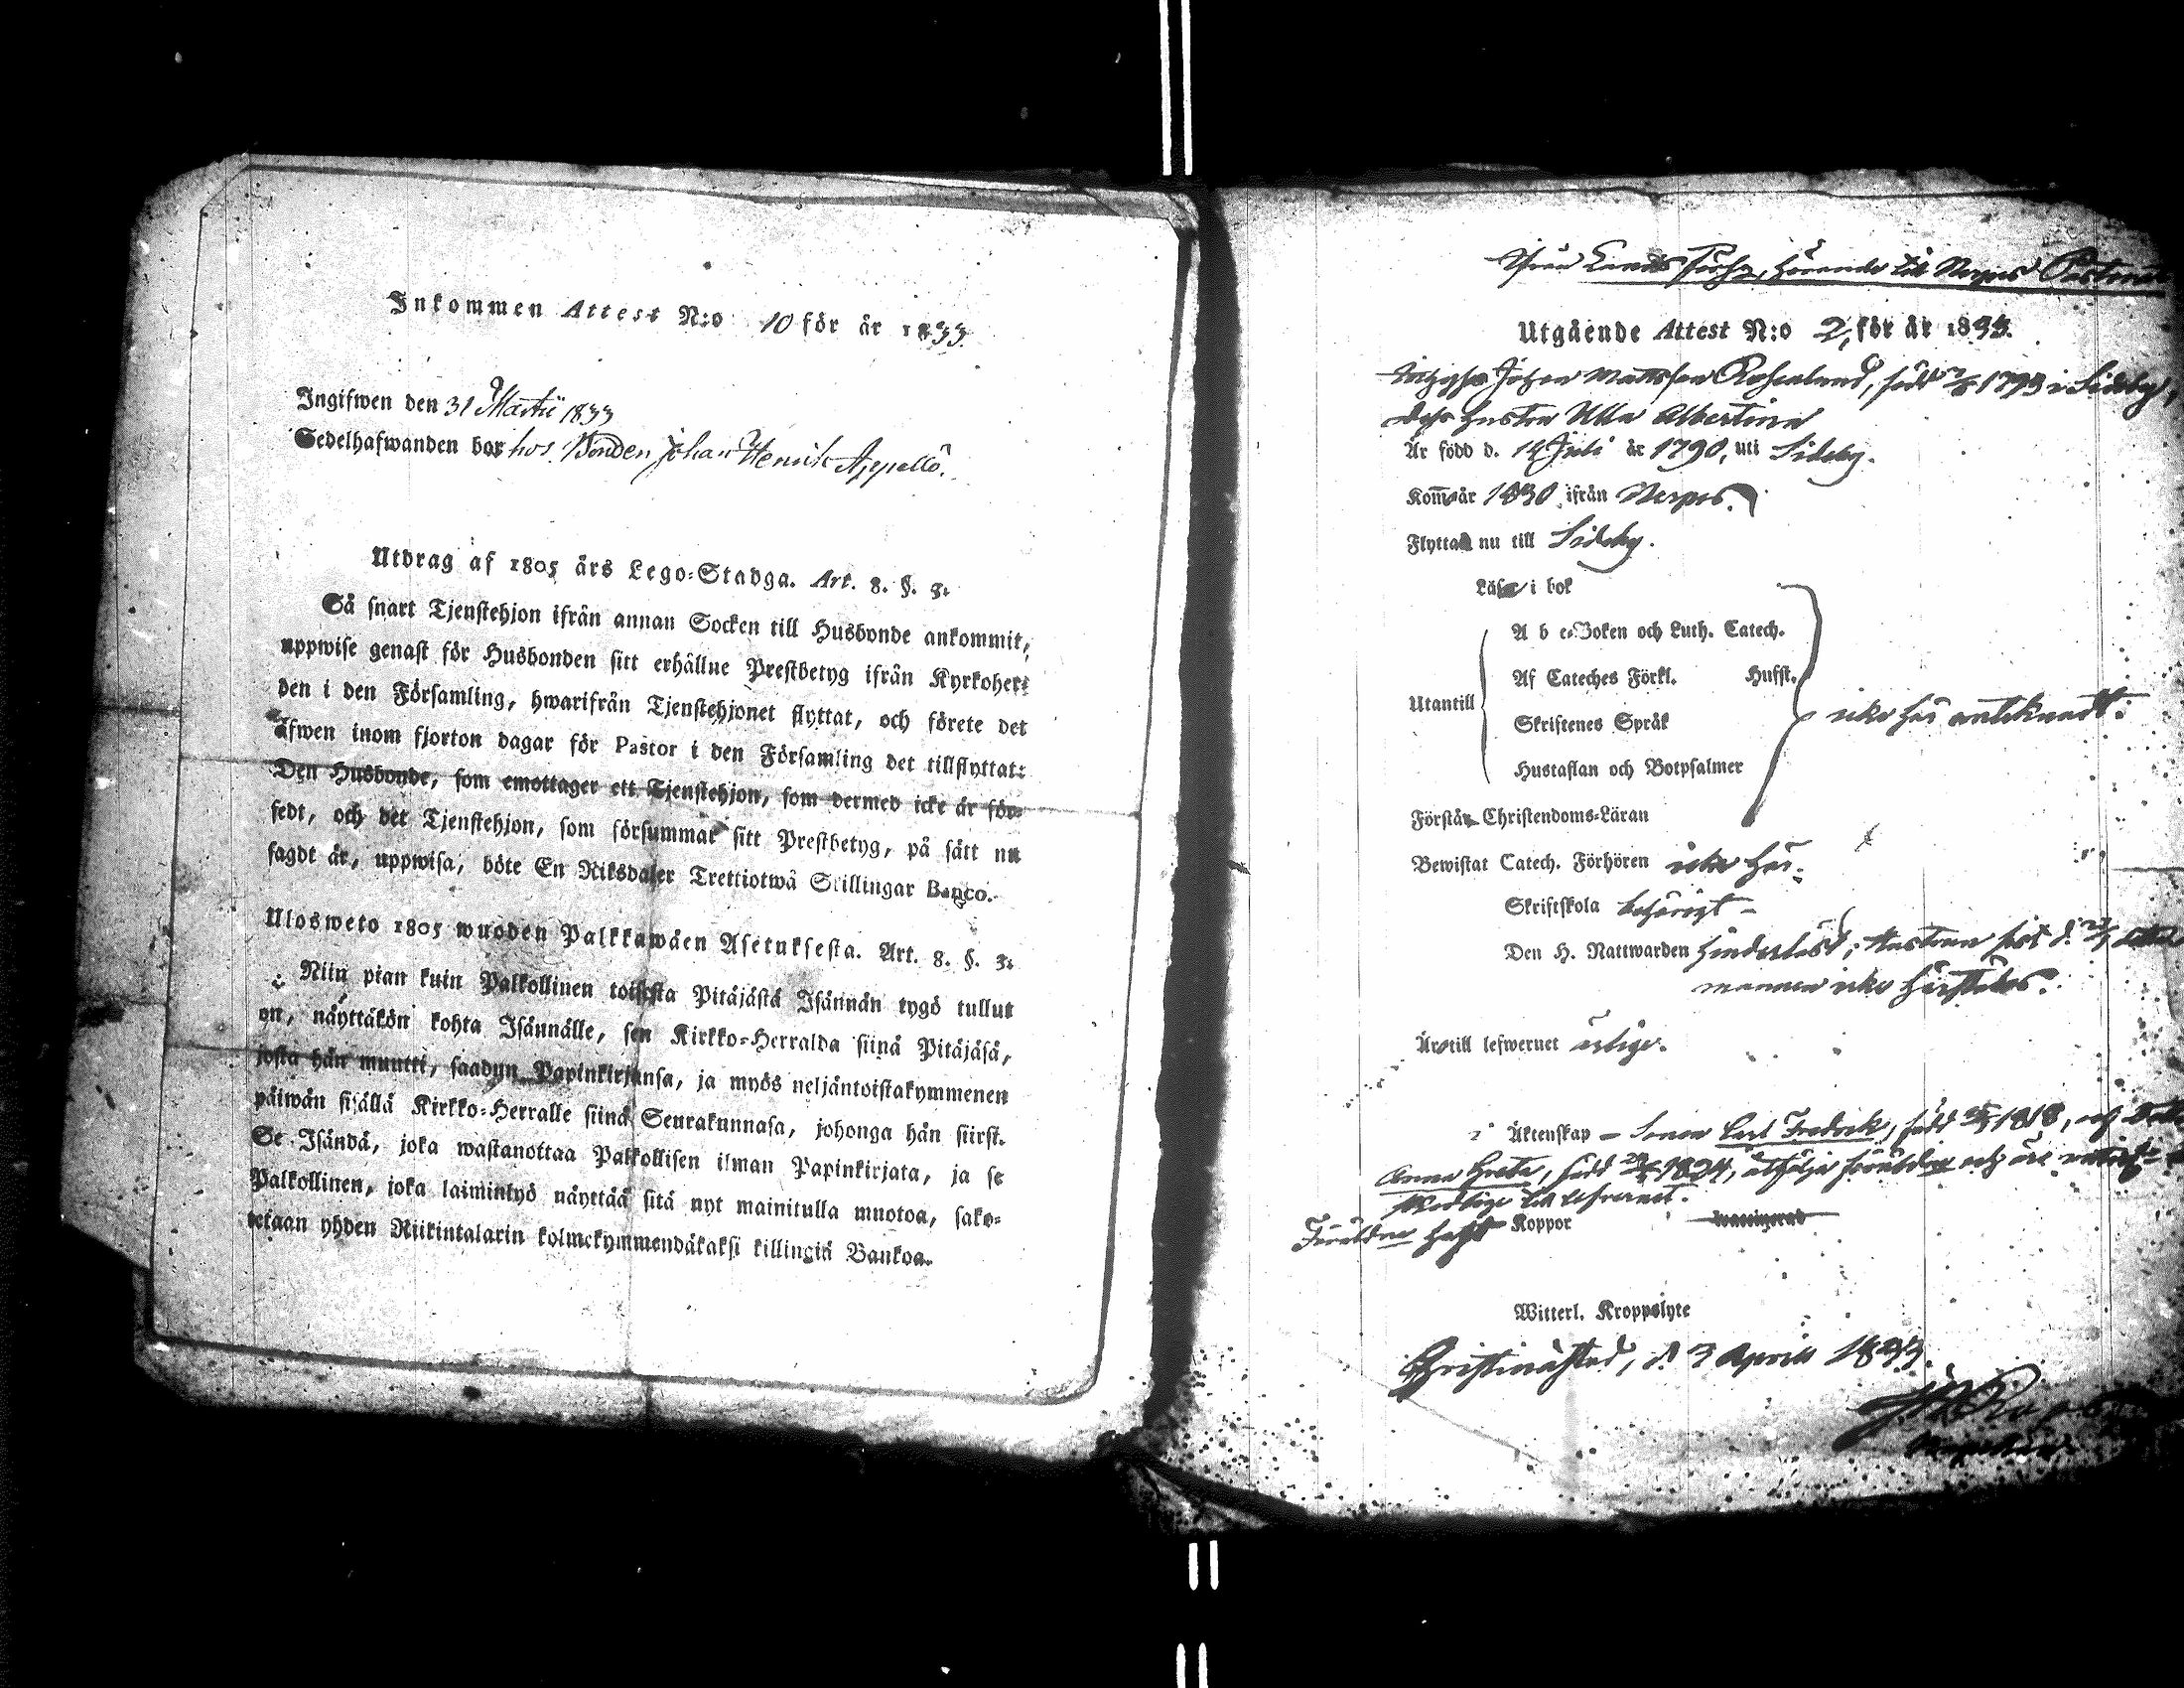 Inkommen Attest N:o 10 för år 1833.
Ingifwen den 31 Martii 1833
Sedelhafwanden bor hos Bonden Johan Henrik Appellö.
Utdrag af 1805 års Lego-Stadga. Art. 8. §. 3.
Så snart Tjenstehjon ifrån annan Socken till Husbonde ankommit,
uppwise genast för Husbonden sitt erhållne Prestbetyg ifrån Kyrkoher-
den i den Församling, hwarifrån Tjenstehjonet flyttat, och förete det
äfwen inom fjorton dagar för Pastor i den Församling det tillflyttat:
Den Husbonde, som emottager ett Tjenstehjon, som dermed icke är för-
sedt, och det Tjenstehjon, som försummar sitt Prestbetyg, på sätt nu
sagdt är, uppwisa, böte En Riksdaler Trettiotwå Skillingar Banco.
Ulosweto 1805 wuoden Palkkawäen Asetuksesta. Art. 8. §. 3.
Niin pian kuin Palkollinen toisesta Pitäjästä Isännän tygö tullut
on, näyttäkön kohta Isännälle, sen Kirkko-Herralda siinä Pitäjäsä,
josta hän muutti, saadun Papinkirjansa, ja myös neljäntoistakymmenen
päiwän sisällä Kirkko-Herralle siinä Seurakunnasa, johonga hän siirsi.
Se Isändä, joka wastanottaa Palkollisen ilman Papinkirjata, ja se
Palkollinen, joka laiminlyö näyttää sitä nyt mainitulla muotoa, sako-
tetaan yhden Riikintalarin kolmekymmendäkaksi killingiä Bankoa.
hörande till Nerpes
Utgående Attest N:o 2, för år 1833.
Johan Mattsson Rosenlund, född 1793 i Sideby,
dess hustru Ulla Albertina
Är född d. 14 Juli år 1790, uti Sideby.
Kom år 1830 ifrån Nerpes.
Flyttar nu till Sideby.
Läsa i bok
A b c-Boken och Luth. Catech.
Af Cateches Förkl. Husst.
Utantill
Skriftenes Språk
icke här anteknadt.
Hustaflan och Botpsalmer
Förstår Christendoms-Läran
Bewistat Catech. Förhören icke här.
Skriftskola behörigt
Den H. Nattwarden hinderlöst; Hustrun sist d.
mannen icke härstädes.
Är till lefwernet ärlige.
i Äktenskap - Sonen Carl Fredrik, född 1818, och
Anna Greta, född 1824, åtfölja föräldrar och äro
till lefvernet.
Föräldrar haft Koppor
Witterl. Kroppslyte
Christinæstad, d. 3 Aprill 1833.